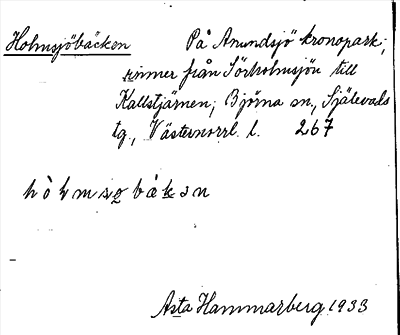 Holmsjöbäcken På Anundsjö kronopark;
rinner från Sörholmsjön till
Kallstjärnen; Björna sn., Själevads
tg., Västernorrl. l. 267
Asta Hammarberg 1933